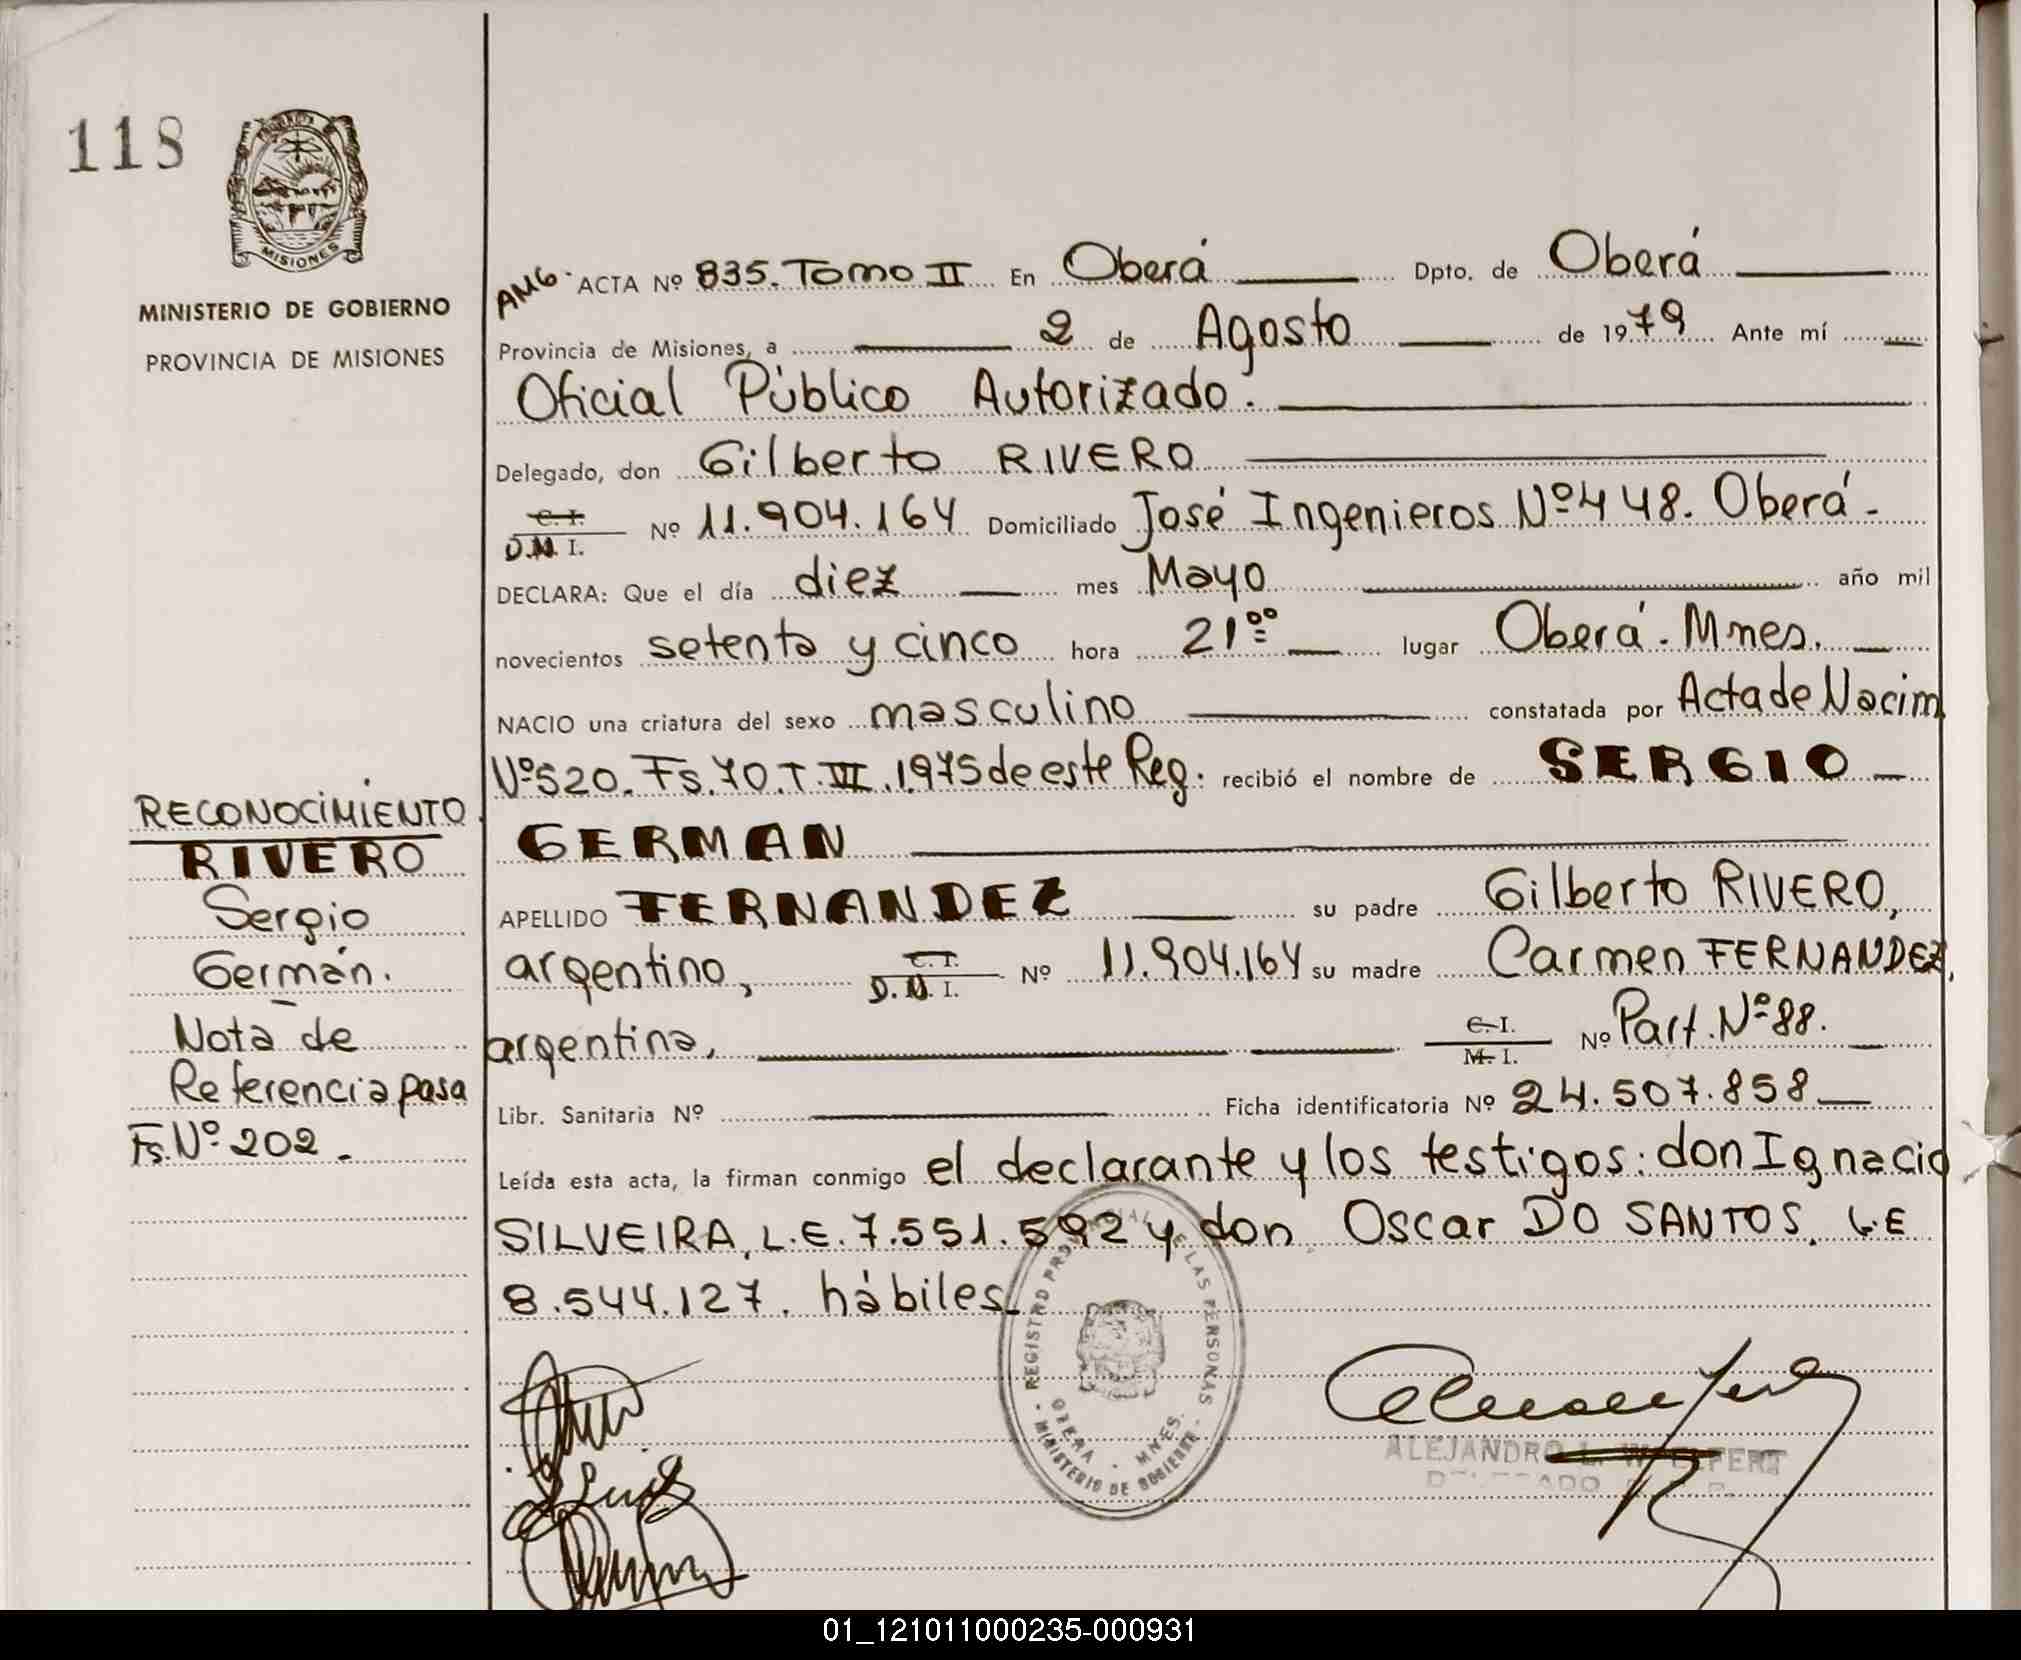 118
MISIONES
MINISTERIO DE GOBIERNO
PROVINCIA DE MISIONES
RECONOCIMIENTO
RIVERO
Sergio
Germán.
Nota de
Referencia pasa
Fs. Nº 202.
AMG. ACTA Nº 835. Tomo II En Oberá Dpto. de Oberá
Provincia de Misiones, a 2 de Agosto de 1979 Ante mí
Oficial Público Autorizado.
Delegado, don Gilberto RIVERO
C. I.
D.N.I. Nº 11.904.164 Domiciliado José Ingenieros Nº 448. Oberá.
DECLARA: Que el día diez mes Mayo año mil
novecientos setenta y cinco hora 21 ºº lugar Oberá. Mnes.
NACIO una criatura del sexo masculino constatada por Acta de Nacim
Nº 520. Fs. 70. T. III. 1975 de este Reg. recibió el nombre de SERGIO
GERMAN
APELLIDO FERNANDEZ su padre Gilberto RIVERO,
argentino, C. I. D.N.I. Nº 11.904.164 su madre Carmen FERNANDEZ,
argentina, C. I. M. I. Nº Part. Nº 88.
Libr. Sanitaria Nº Ficha identificatoria Nº 24.507.858
Leída esta acta, la firman conmigo el declarante y los testigos: don Ignacio
SILVEIRA, L.E. 7.551.592 y don Oscar DO SANTOS, L.E
8.544.127. hábiles.
REGISTRO PROVINCIAL DE LAS PERSONAS
OBERA - MNES.
MINISTERIO DE GOBIERNO
ALEJANDRO L. W
DELEGADO
01_121011000235-000931